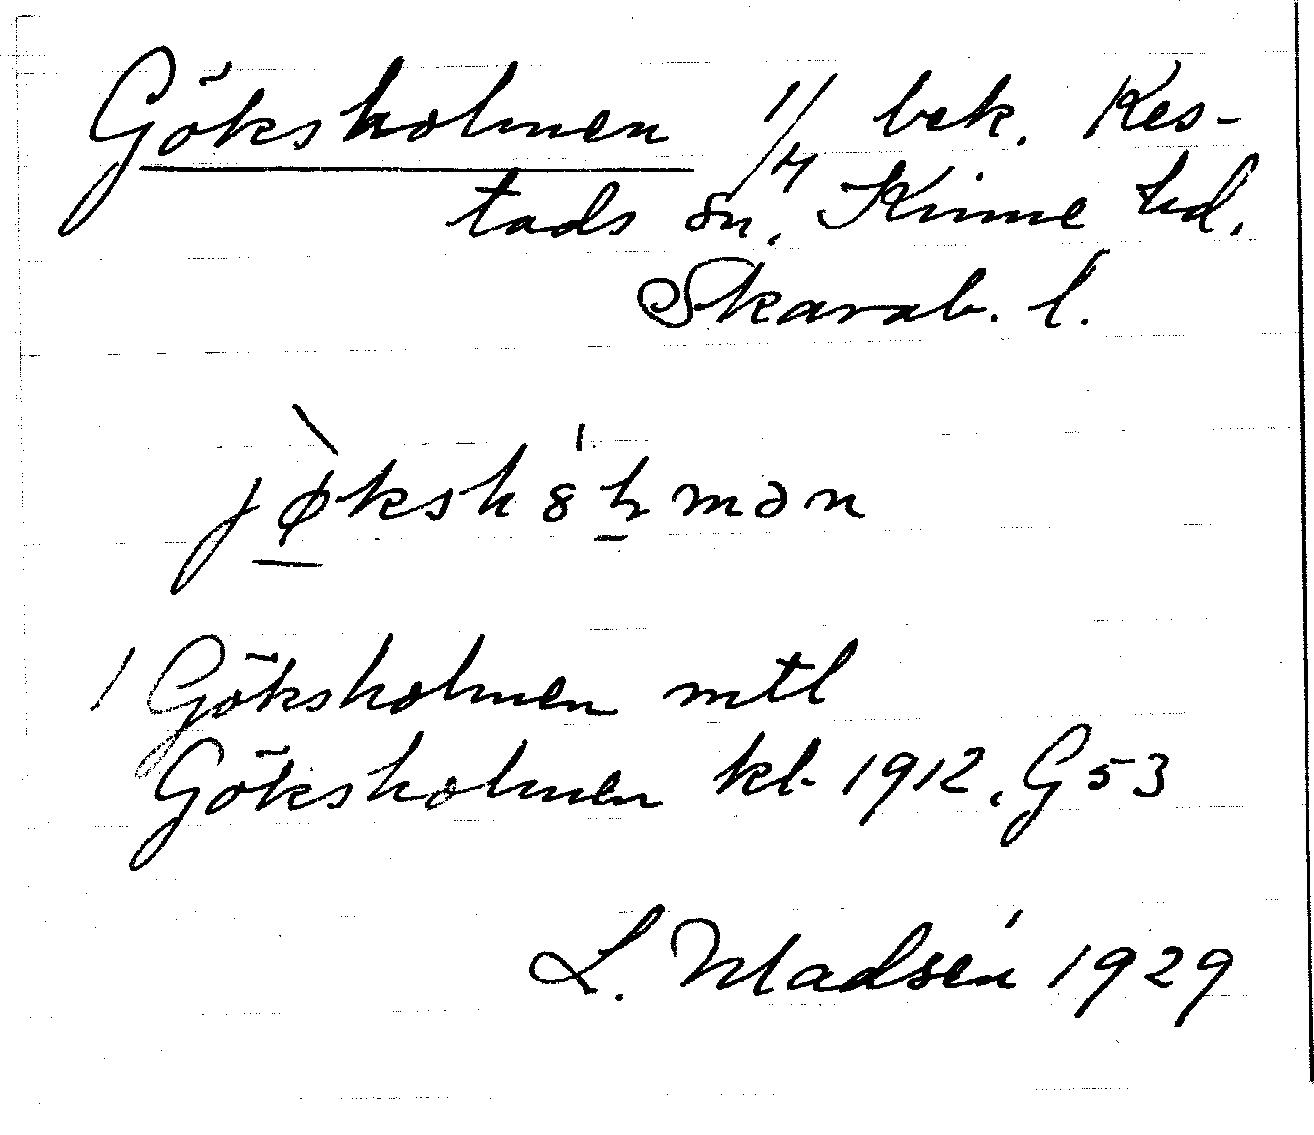 Göksholmen 1/4 bek. Kes-
tads sn. Kinne hd.
Skarab. l.
jø̀kshȣ́ɫmən
1 Göksholmen mtl
Göksholmen kb 1912. G 53
L. Madsén 1929